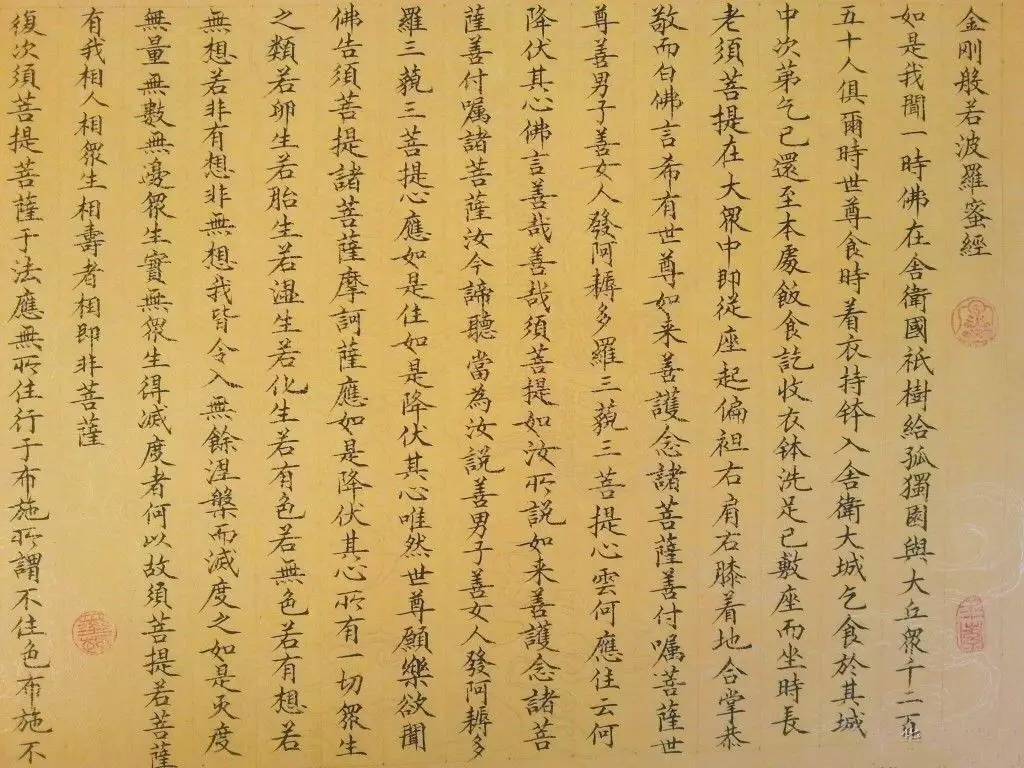 金剛般若波羅蜜經
如是我聞一時佛在舍衛國祇樹給孤獨園與大丘眾千二百
五十人俱爾時世尊食時着衣持鉢入舍衛大城乞食於其城
中次第乞已還至本處飯食訖收衣鉢洗足已敷座而坐時長
老須菩提在大眾中即從座起偏袒右肩右膝着地合掌恭
敬而白佛言希有世尊如来善護念諸菩薩善付嘱菩薩世
尊善男子善女人發阿耨多羅三藐三菩提心雲何應住云何
降伏其心佛言善哉善哉須菩提如汝所說如来善護念諸菩
薩善付嘱諸菩薩汝今諦聽當為汝說善男子善女人發阿耨多
羅三藐三菩提心應如是住如是降伏其心唯然世尊願樂欲聞
佛告須菩提諸菩薩摩訶薩應如是降伏其心所有一切眾生
之類若卵生若胎生若濕生若化生若有色若無色若有想若
無想若非有想非無想我皆令入無餘涅槃而滅度之如是灭度
無量無數無邊眾生實無眾生得滅度者何以故須菩提若菩薩
有我相人相眾生相壽者相即非菩薩
復次須菩提菩薩于法應無所住行于布施所謂不住色布施不